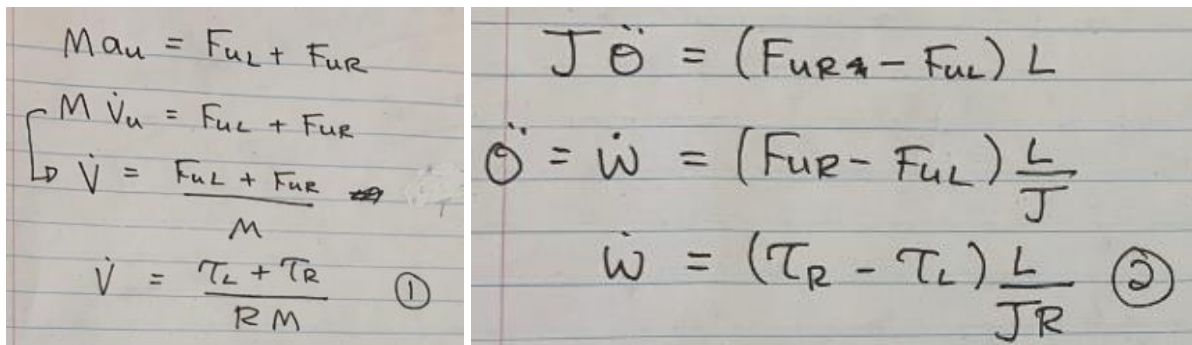 Mau = FuL + FuR
M V̇u = FuL + FuR
V̇ = FuL + FuR / M
V̇ = τL + τR / R M ①
J Θ̈ = (FuR - FuL) L
Θ̈ = ẇ = (FuR - FuL) L / J
ẇ = (τR - τL) L / JR ②